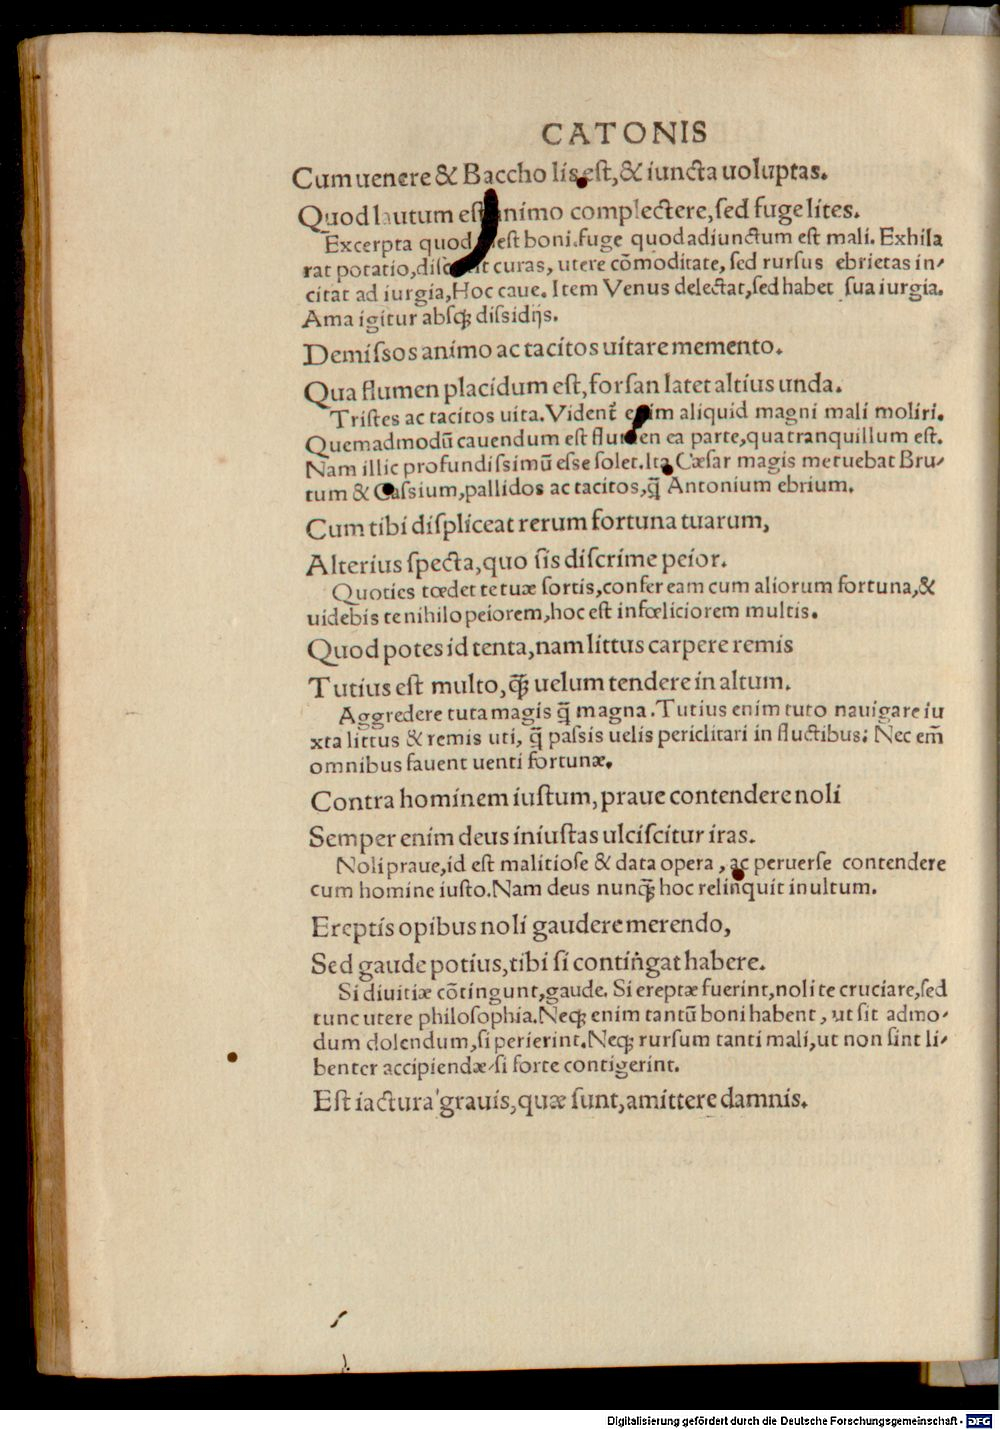 CATONIS
Cum uenere & Baccho lis est, & iuncta uoluptas.
Quod lautum est animo complectere, sed fuge lites.
Excerpta quod inest boni. fuge quod adiunctum est mali. Exhila
rat potatio, discutit curas, utere cõmoditate, sed rursus ebrietas in-
citat ad iurgia, Hoc caue. Item Venus delectat, sed habet sua iurgia.
Ama igitur absqꝫ dissidijs.
Demissos animo ac tacitos uitare memento.
Qua flumen placidum est, forsan latet altius unda.
Tristes ac tacitos uita. Vident̃ enim aliquid magni mali moliri.
Quemadmodũ cauendum est flumen ea parte, qua tranquillum est.
Nam illic profundissimũ esse solet. Ita Cæsar magis metuebat Bru-
tum & Cassium, pallidos ac tacitos, q̃ Antonium ebrium.
Cum tibi displiceat rerum fortuna tuarum,
Alterius specta, quo sis discrime peior.
Quoties tœdet te tuæ sortis, confer eam cum aliorum fortuna, &
uidebis te nihilo peiorem, hoc est infœliciorem multis.
Quod potes id tenta, nam littus carpere remis
Tutius est multo, q̃ꝫ uelum tendere in altum.
Aggredere tuta magis q̃ magna. Tutius enim tuto nauigare iu
xta littus & remis uti, q̃ passis uelis periclitari in fluctibus: Nec em̃
omnibus fauent uenti fortunæ.
Contra hominem iustum, praue contendere noli
Semper enim deus iniustas ulciscitur iras.
Noli praue, id est malitiose & data opera, ac peruerse contendere
cum homine iusto. Nam deus nunq̃ꝫ hoc relinquit inultum.
Ereptis opibus noli gaudere merendo,
Sed gaude potius, tibi si contingat habere.
Si diuitiæ cõtingunt, gaude. Si ereptæ fuerint, noli te cruciare, sed
tunc utere philosophia. Neqꝫ enim tantũ boni habent, ut sit admo-
dum dolendum, si perierint. Neqꝫ rursum tanti mali, ut non sint li-
benter accipiendæ, si forte contigerint.
Est iactura grauis, quæ sunt, amittere damnis.
Digitalisierung gefördert durch die Deutsche Forschungsgemeinschaft - DFG